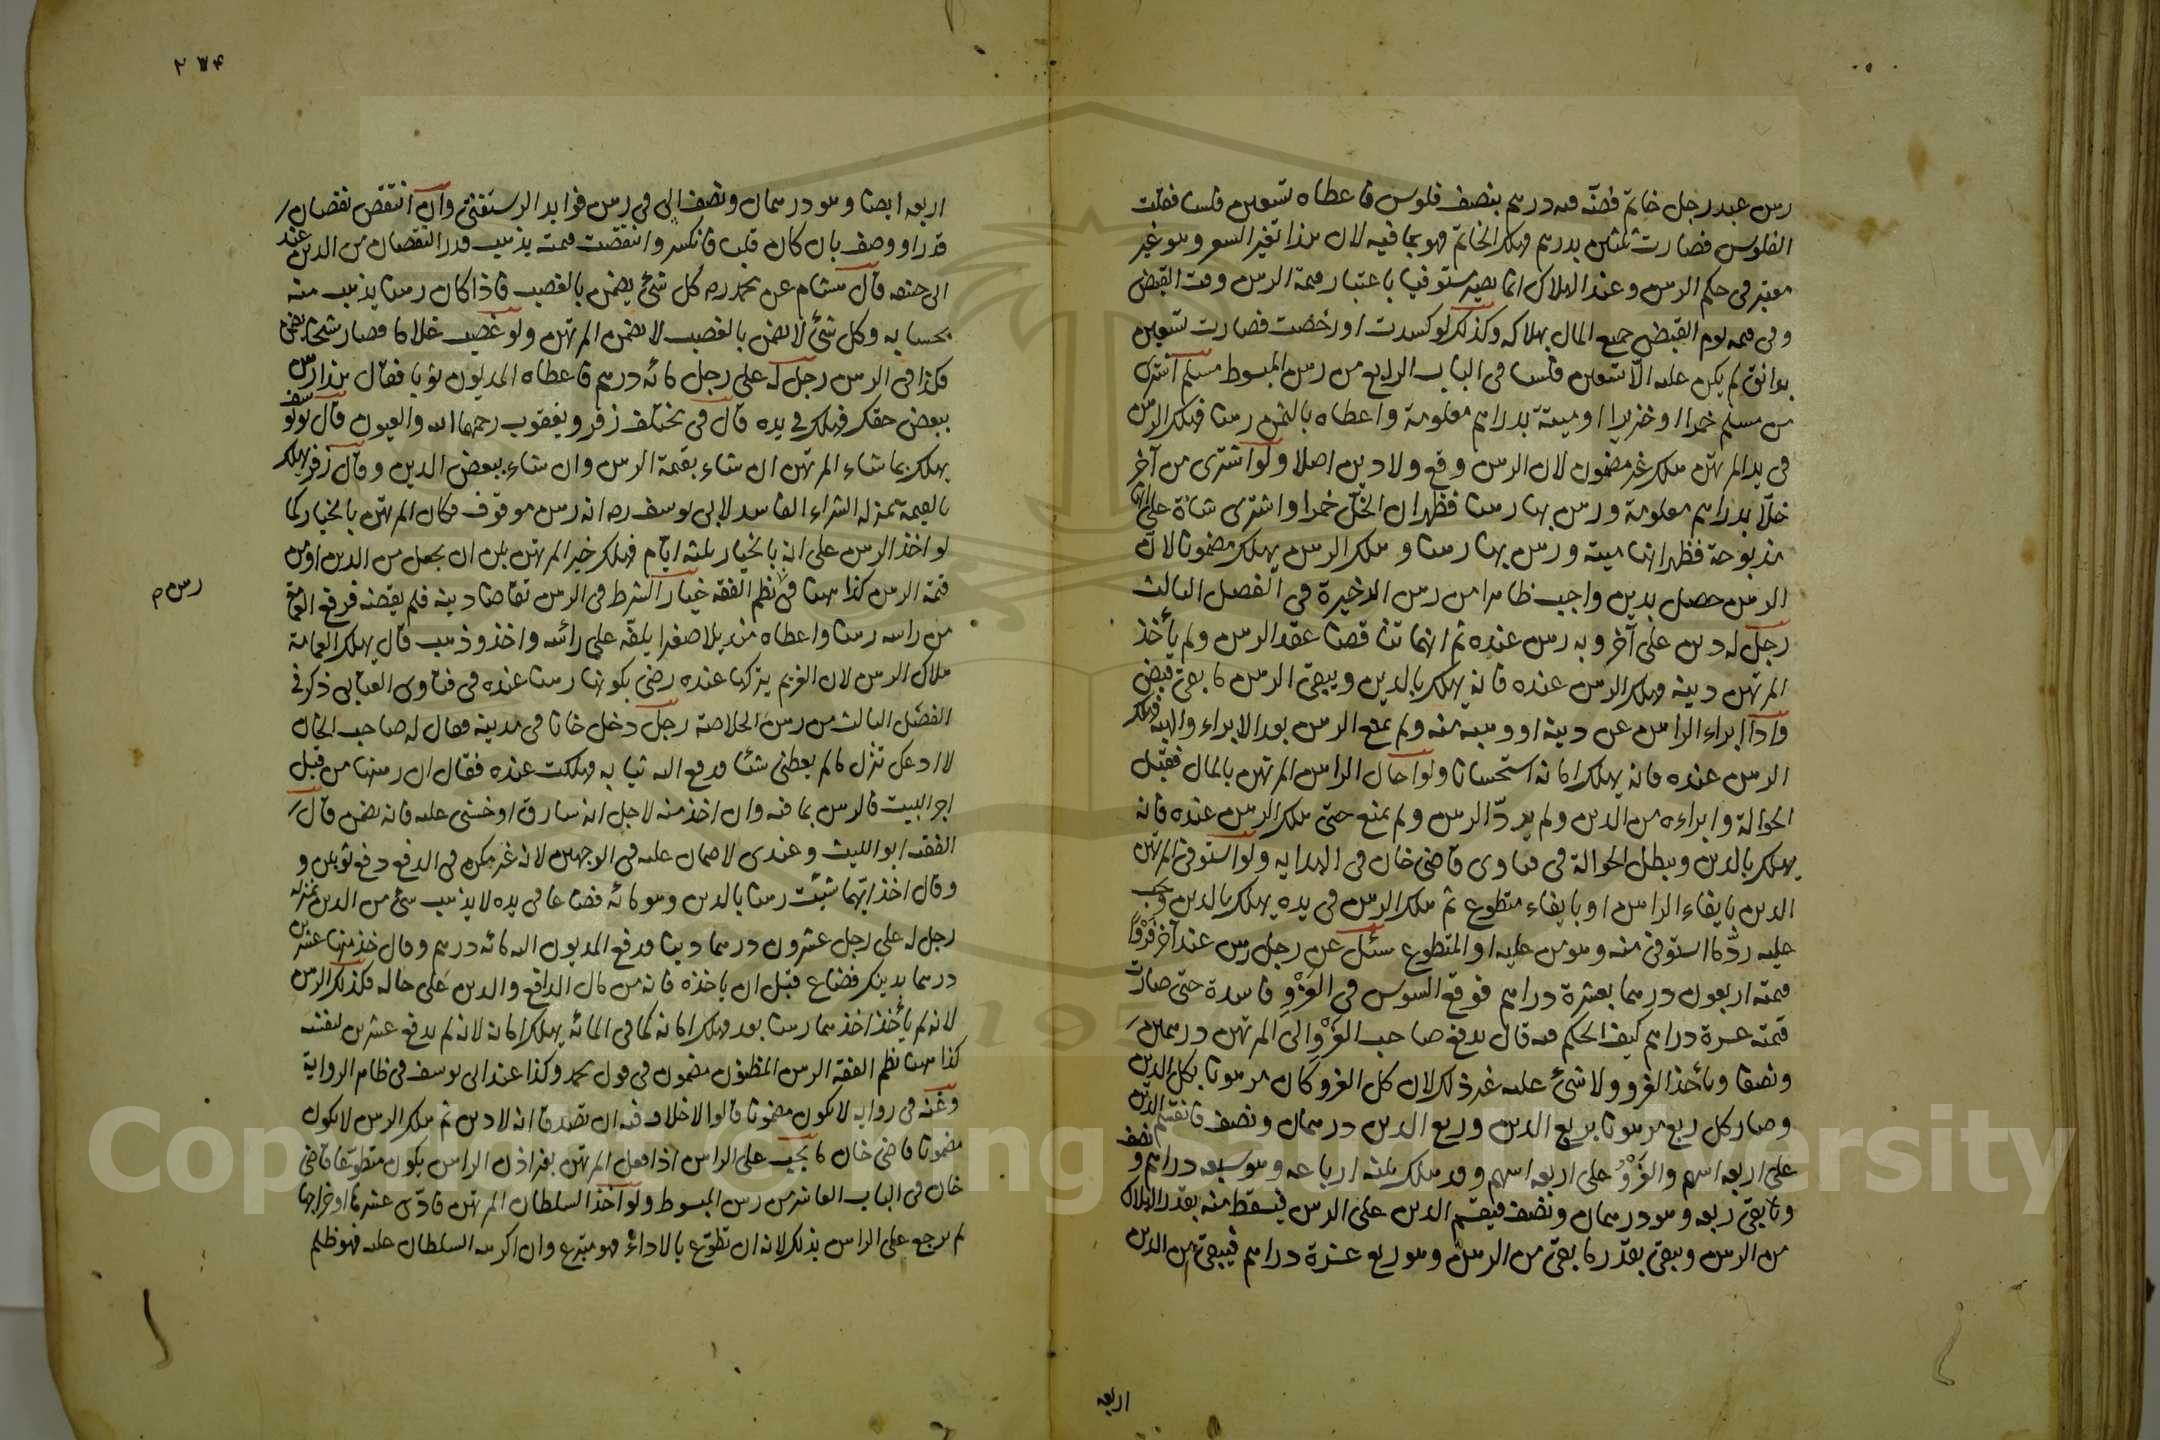 رهن عبد رجل خاتم فضة فيه درهم بنصف فلوس فاعطاه تسعين فلسا فغلت
الفلوس فصارت ثلثين بدرهم فهلك الخاتم فهو بما فيه لان هذا تغير السعر وهو غير
معتبر في حكم الرهن وعند الهلاك انما يصير مستوفيا باعتبار قيمة الرهن وقت القبض
وفي قيمه يوم القبض جميع المال بهلاكه وكذلك لو كسدت او رخصت فصارت تسعين
بدانق لم يكن عليه الا تسعين فلسا في الباب الرابع من رهن المبسوط مسلم اشترى
من مسلم خمرا او خنزيرا او ميتة بدراهم معلومة واعطاه بالثمن رهنا فهلك الرهن
في يد المرتهن هلك غير مضمون لان الرهن وقع ولا دين اصلا ولو اشترى من آخر
خلا بدراهم معلومة ورهن بها رهنا فظهر ان الخل خمر او اشترى شاة على انها
مذبوحة فظهر انها ميتة ورهن بها رهنا وهلك الرهن يهلك مضمونا لان
الرهن حصل بدين واجب ظاهرا من رهن الذخيرة في الفصل الثالث
رجل له دين على آخر وبه رهن عنده ثم انهما تناقضا عقد الرهن ولم يأخذ
المرتهن دينه وهلك الرهن عنده فانه يهلك بالدين ويبقى الرهن ما بقي قبض
واذا ابراء الراهن عن دينه او وهبه منه ولم يمنع الرهن بعد الابراء والهبة فهلك
الرهن عنده فانه يهلك امانه استحسانا ولو احال الراهن المرتهن بالمال فقبل
الحوالة وابراءه من الدين ولم يرد الرهن ولم يمنع حتى هلك الرهن عنده فانه
يهلك بالدين ويبطل الحوالة في فتاوى قاضي خان في الهدايه ولو استوفى المرتهن
الدين بايفاء الراهن او بايفاء متطوع ثم هلك الرهن في يده يهلك بالدين ويجب
عليه رد ما استوفى منه وهو من عليه او المتطوع سئل عن رجل رهن عند آخر فروا
قيمته اربعون درهما بعشرة دراهم فوقع السوس في الفرو فاسدة حتى صارت
قيمته عشرة دراهم كيف الحكم فيه قال يدفع صاحب الفرو الى المرتهن درهمين
ونصفا ويأخذ الفرو ولا شئ عليه غير ذلك لان كل الفرو كان مرهونا بكل الدين
وصار كل ربع مرهونا بربع الدين وربع الدين درهمان ونصف فانقسم الدين
على اربعة اسهم والفرو على اربعة اسهم وقد هلك ثلثة ارباعه وهو سبعه دراهم ونصف
وبقي ربعه وهو درهمان ونصف فيقسم الدين على الرهن فيسقط منه بقدر الهلاك
من الرهن ويبقى بقدر ما بقي من الرهن وهو ربع عشرة دراهم فيبقى من الدين
اربعه
٢٧٤
اربعه ايضا وهو درهمان ونصف الى في رهن فوايد الرستغني وان انتقص نقصان
قدر او وصف بان كان قلب فانكسر وانتقصت قيمته يذهب قدر النقصان من الدين عند
ابي حنيفه قال هشام عن محمد ره كل شئ يضمن بالغصب فاذا كان رهنا يذهب منه
بحسابه وكل شئ لا يضمن بالغصب لا يضمن المرتهن ولو غصب غلاما فصار شيخا يضمن
فكذا في الرهن رجل له على رجل مائه درهم فاعطاه المديون ثوبا فقال هذا رهن
ببعض حقك فهلك في يده قال في مختلف زفر ويعقوب رحمهما الله والعيون قال ابو يوسف
يهلك بما شاء المرتهن ان شاء بقيمة الرهن وان شاء ببعض الدين وقال زفر يهلك
بالقيمة بمنزلة الشراء الفاسد لابي يوسف ره انه رهن موقوف فكان المرتهن بالخيار كما
لو اخذ الرهن على انه بالخيار ثلثه ايام فهلك خير المرتهن بين ان يجعل من الدين او من
قيمة الرهن كذا هنا في نظم الفقه خيار الشرط في الرهن تقاضا دينه فلم يقضه فرفع العمامة
رهن م
من راسه رهنا واعطاه منديلا صغيرا يلفه على رائسه واخذ وذهب قال يهلك العمامة
هلاك الرهن لان الغريم بتركها عنده رضي بكونها رهنا عنده في فتاوى العتابي ذكر في
الفصل الثالث من رهن الخلاصة رجل دخل خانا في مدينة فقال له صاحب الخان
لا ادعك تنزل مالم يعطني شئا فدفع اليه ثيابه فهلكت عنده فقال ان رهنها من قبل
اجر البيت فالرهن بما فيه وان اخذ منه لاجل انه سارق او خشي عليه فانه يضمن قال
الفقيه ابو الليث وعندي لا ضمان عليه في الوجهين لانه غير مكره في الدفع دفع ثوبين و
وقال اخذ ايهما شئت رهنا بالدين وهو مائه فضاعا في يده لا يذهب شئ من الدين بمنزله
رجل له على رجل عشرون درهما دينا فدفع المديون اليه مائه درهم وقال خذ منها عشرين
درهما بدينك فضاع قبل ان ياخذه فانه من مال الدافع والدين على حاله فكذلك الرهن
لانه لم يأخذ احدهما رهنا بعد فهلك امانه كما في المائه يهلك امانه لانه لم يدفع عشرين لنفسه
كذا هنا نظم الفقه الرهن المظنون مضمون في قول محمد وكذا عند ابي يوسف في ظاهر الرواية
وعنه في روايه لا يكون مضمونا قالوا لا خلاف فيه ان تصدقا انه لا دين ثم هلك الرهن لا يكون
مضمونا قاضي خان ما يجب على الراهن اذا فعل المرتهن بغير اذن الراهن يكون متطوعا قاضي
خان في الباب العاشر من رهن المبسوط ولو اخذ السلطان المرتهن فادى عشرها او خراجها
لم يرجع على الراهن بذلك لانه ان تطوع بالاداء فهو متبرع وان اكرهه السلطان عليه فهو ظلم
Copyright © King Saud University